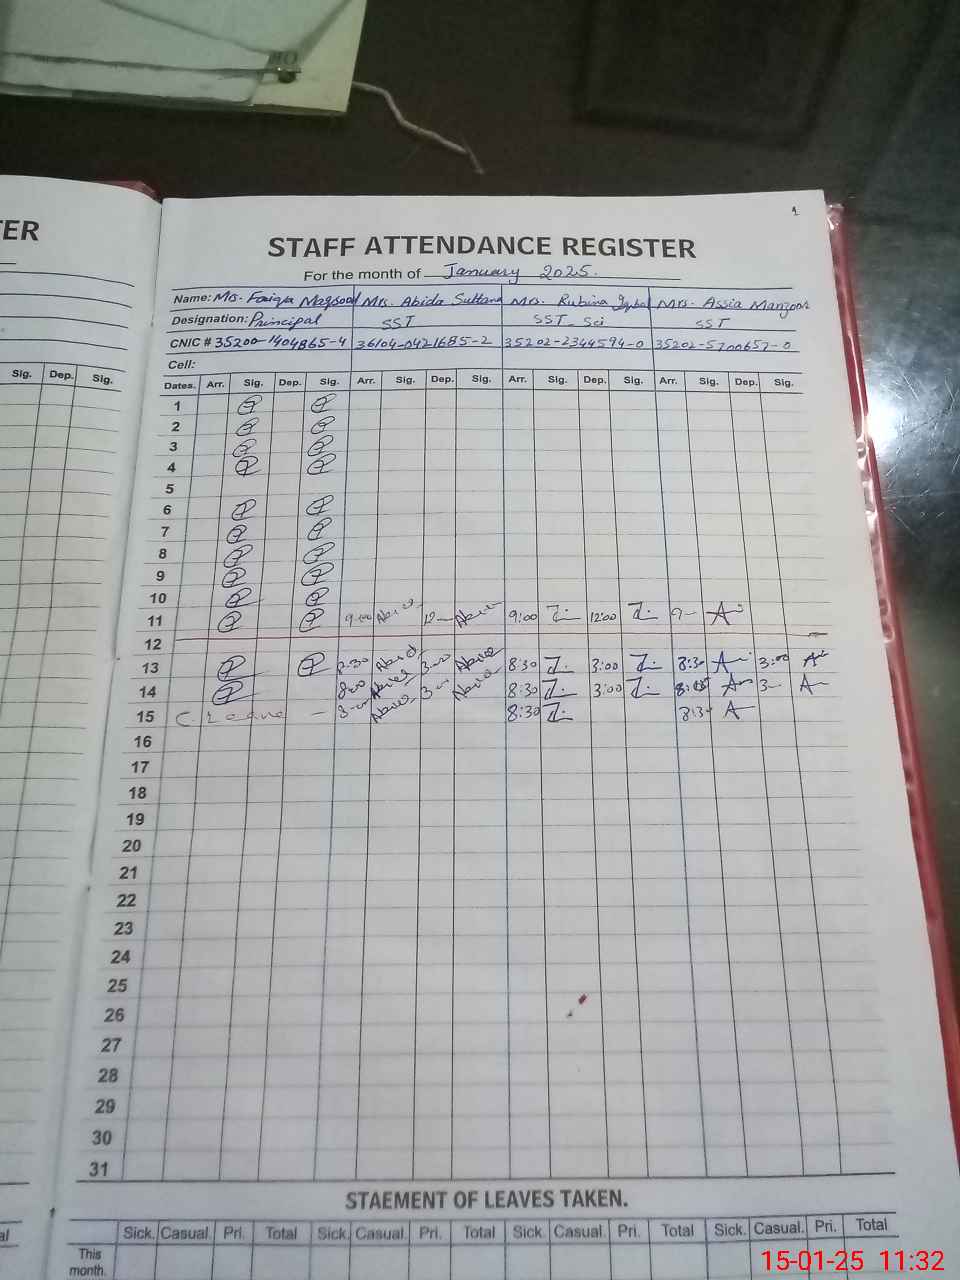 TER
1
STAFF ATTENDANCE REGISTER
For the month of January 2025.
Name: Mrs. Faiqa Maqsood Mrs. Abida Sultana Mrs. Rubina Iqbal Mrs. Assia Manzoor
Designation: Principal SST SST-Sci SST
CNIC # 35200-1404865-4 36104-0421685-2 35202-2344594-0
Cell:
Sig. Dep. Sig. Dates. Arr. Sig. Dep. Sig. Arr. Sig. Dep. Sig. Arr. Sig. Dep. Sig. Arr. Sig. Dep. Sig.
1
2
3
4
5
6
7
8
9
10
11 9:00 9:00 12:00 9-
12
13 8:30 3:00 8:30 3:00 8:30 3:00
14 8:00 3:00 8:30 3:00 3-
15 C. Leave - 8:00 8:30 8:30
16
17
18
19
20
21
22
23
24
25
26
27
28
29
30
31
STAEMENT OF LEAVES TAKEN.
al Sick. Casual. Pri. Total Sick. Casual. Pri. Total Sick. Casual. Pri. Total Sick. Casual. Pri. Total
This
month.
15-01-25 11:32